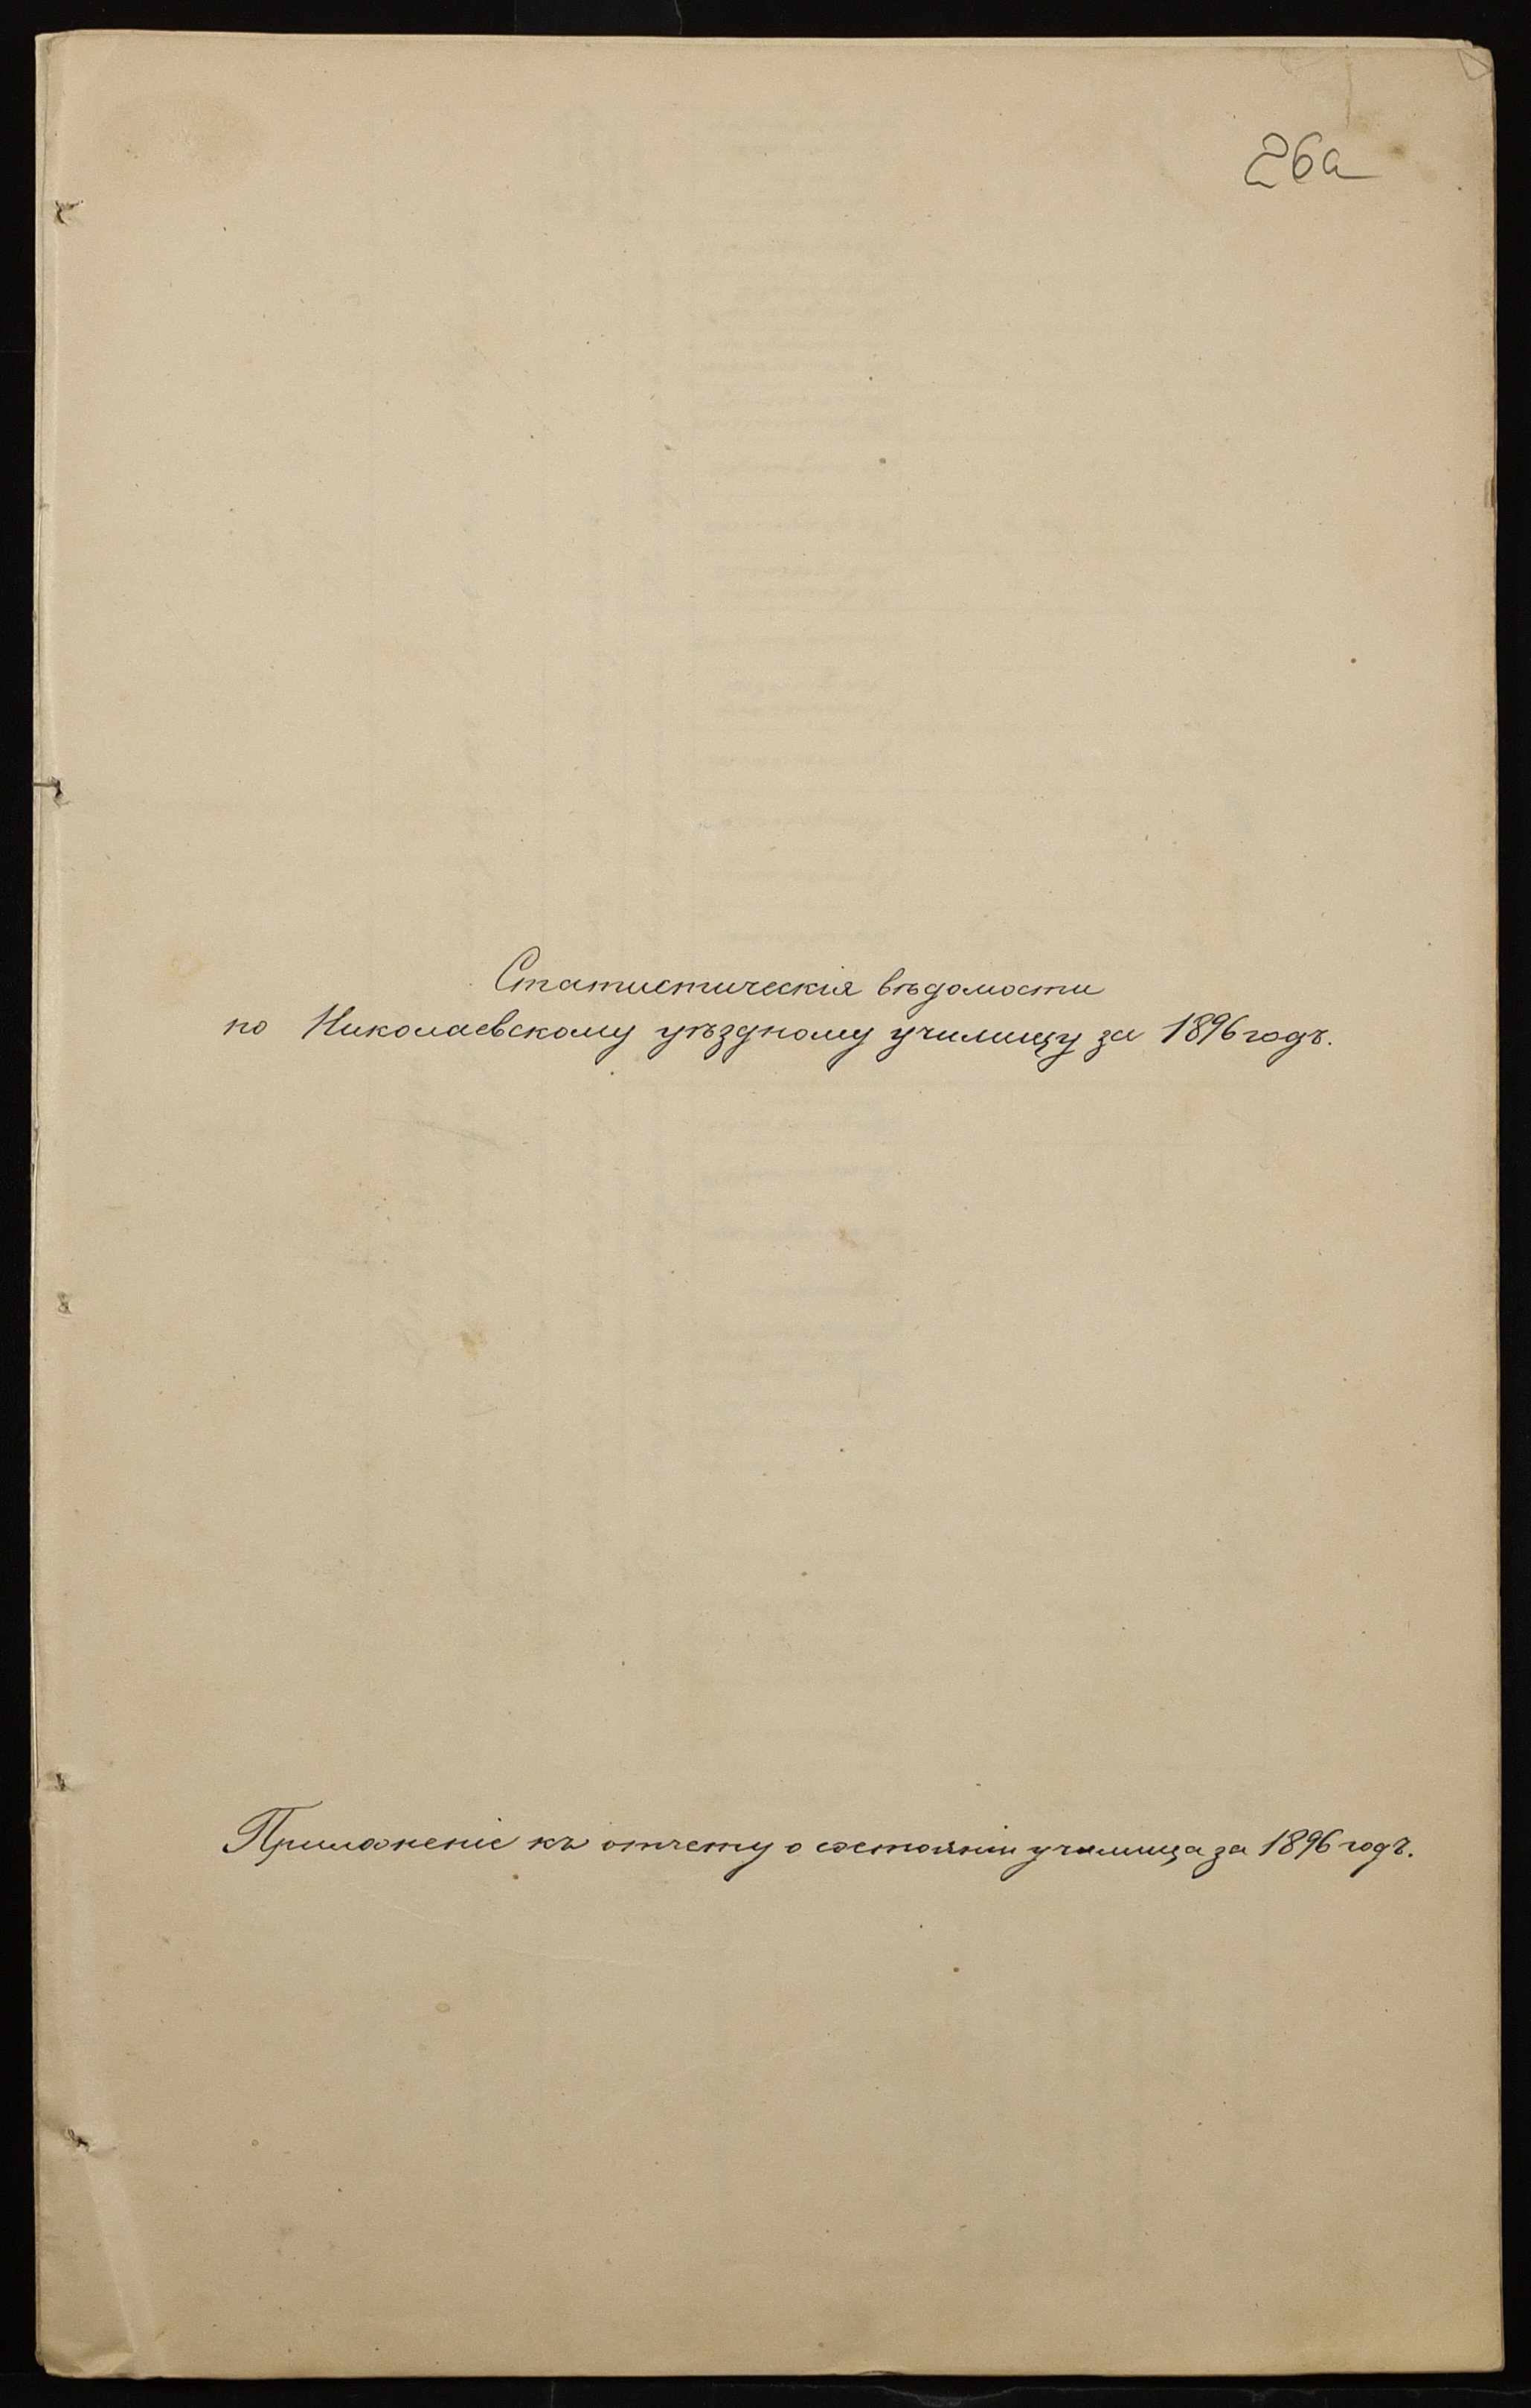 26а
Статистическія вѣдомости
по Николаевскому уѣздному училищу за 1896 годъ.
Приложеніе къ отчету о состояніи училища за 1896 годъ.